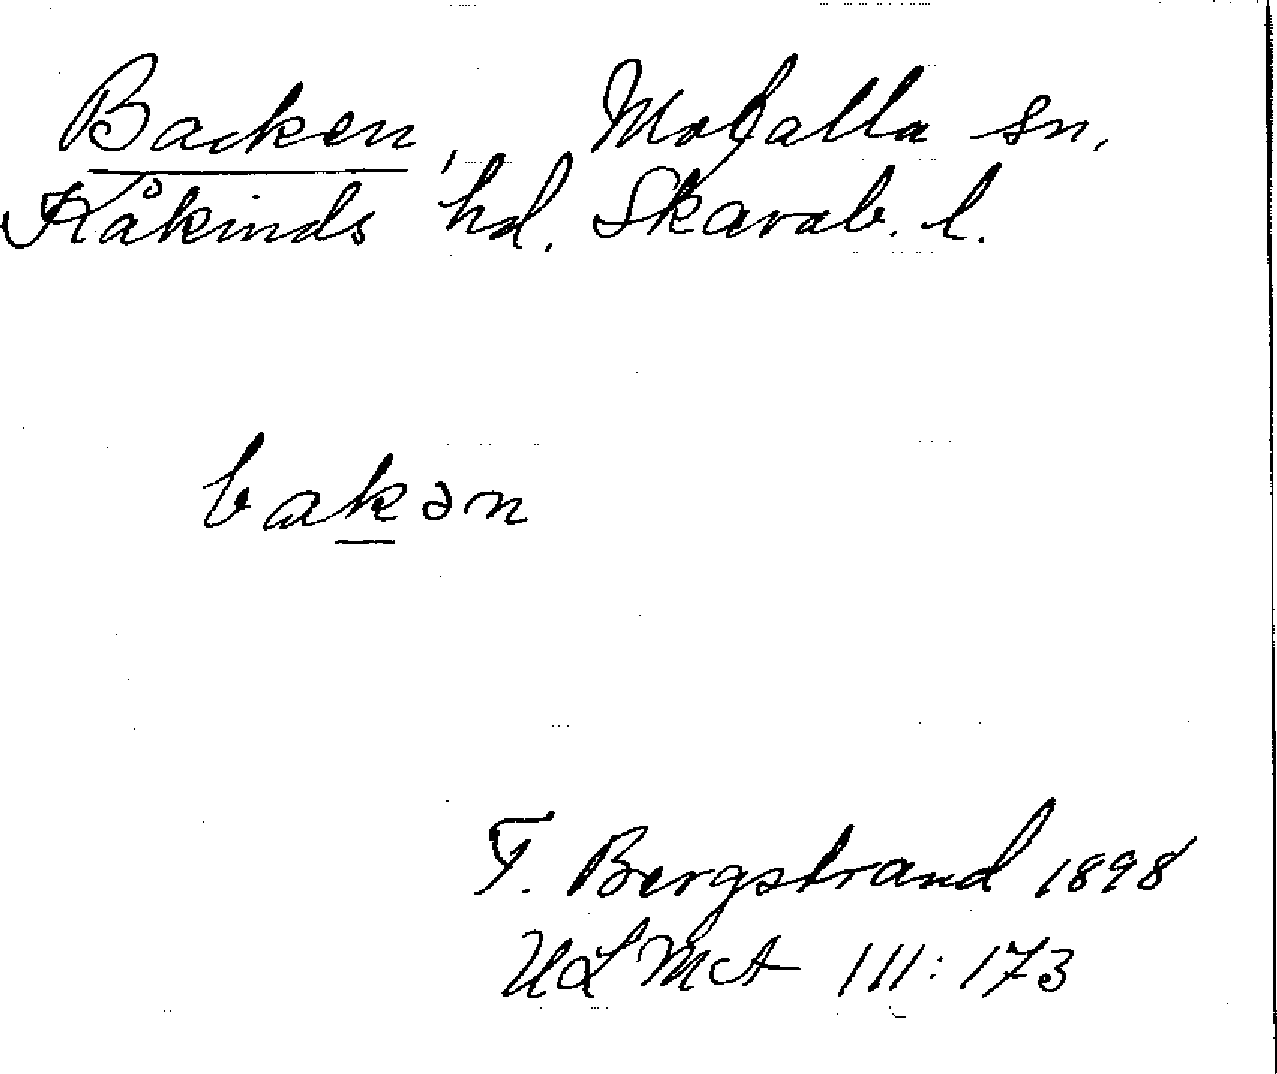 Backen, Mofalla sn,
Kåkinds hd. Skarab. l.
bakən
T. Bergstrand 1898
ULMA 111:173